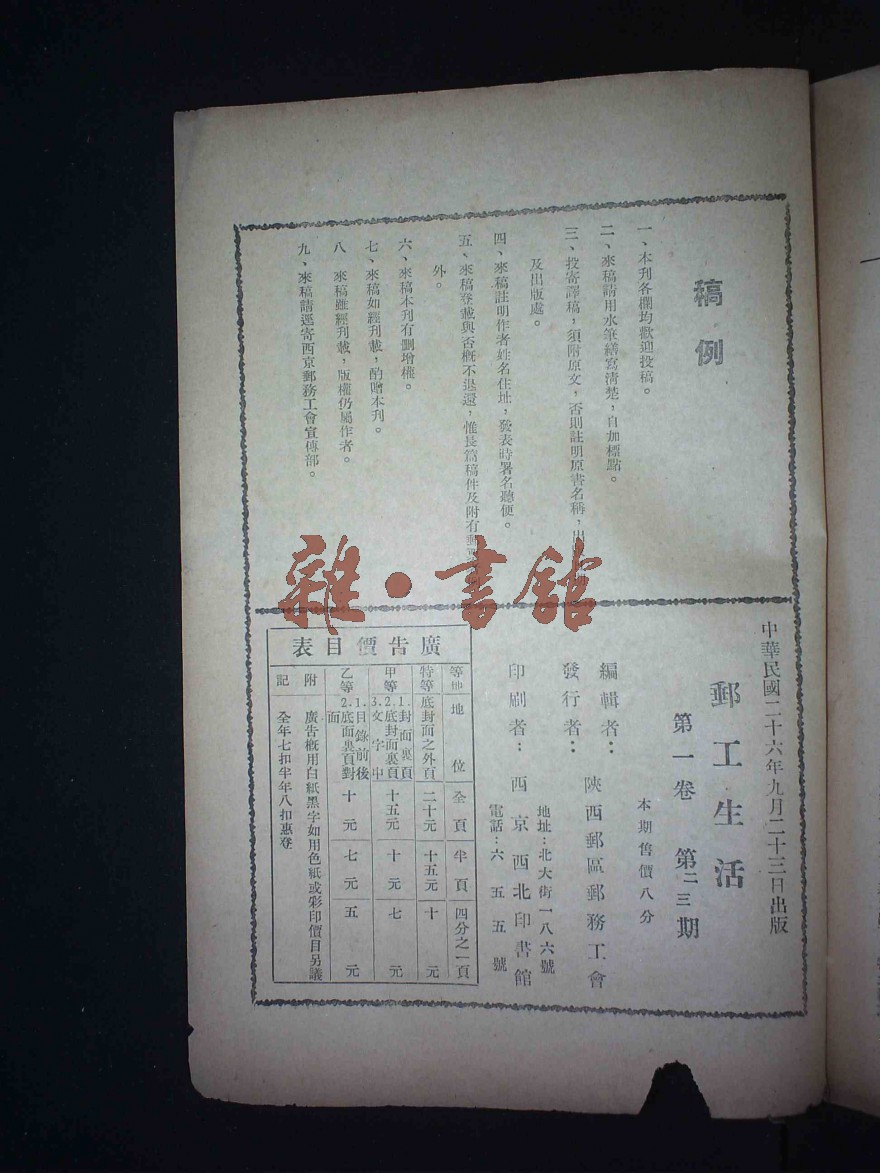 稿例
一、本刊各欄均歡迎投稿。
二、來稿請用水筆繕寫清楚，自加標點。
三、投寄譯稿，須附原文，否則註明原書名稱，出
及出版處。
四、來稿註明作者姓名住址，發表時署名聽便。
五、來稿登載與否概不退還，惟長篇稿件及附有郵
外。
六、來稿本刊有刪增權。
七、來稿如經刊載，酌贈本刊。
八、來稿雖經刊載，版權仍屬作者。
九、來稿請逕寄西京郵務工會宣傳部。
中華民國二十六年九月二十三日出版
郵工生活
第一卷 第二三期
本期售價八分
編輯者：
發行者：
陝西郵區郵務工會
地址：北大街一八六號
電話：六五五號
印刷者：西京西北印書館
廣告價目表
等 地位 全頁 半頁 四分之一頁
特等 底封面之外頁 二十元 十五元 十元
甲等 1.封面裏頁 2.底封面裏頁 3.文字中 十五元 十元 七元
乙等 1.目錄前後 2.底面裏頁對面 十元 七元 五元
附記 廣告概用白紙黑字如用色紙或彩印價目另議
全年七扣半年八扣惠登
雜·書館